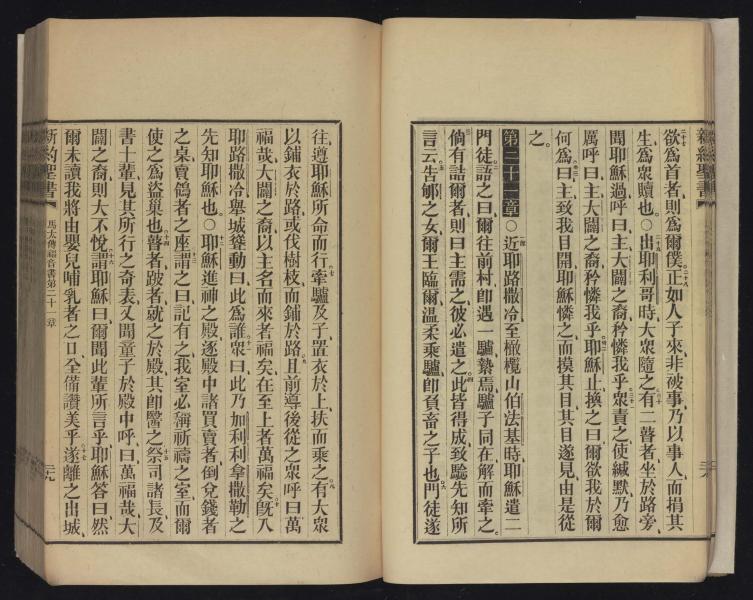 新約聖書
欲爲首者則爲爾僕正如人子來非被事乃以事人而捐其
生爲衆贖也〇出耶利哥時大衆隨之有二瞽者坐於路旁
聞耶穌過呼曰主大闢之裔矜憐我乎衆責之使緘默乃愈
厲呼曰主大闢之裔矜憐我乎耶穌止換之曰爾欲我於爾
何爲曰主致我目開耶穌憐之而摸其目其目遂見由是從
之
第二十一章〇近耶路撒冷至橄欖山伯法基時耶穌遣二
門徒語之曰爾往前村卽遇一驢縶焉驢子同在解而牽之
倘有詰爾者則曰主需之彼必遣之此皆得成致騐先知所
言云生郇之女爾王臨爾溫柔乘驢卽負畜之子也門徒遂
往遵耶穌所命而行牽驢及子置衣於上扶而乘之有大衆
以鋪衣於路或伐樹枝而鋪於路且前導後從之衆呼曰萬
福哉大闢之裔以主名而來者福矣在至上者萬福矣旣入
耶路撒冷舉城聳動曰此爲誰衆曰此乃加利利拿撒勒之
先知耶穌也〇耶穌進神之殿逐殿中諸買賣者倒兌錢者
之桌賣鴿者之座謂之曰記有之我室必稱祈禱之室而爾
使之爲盜巢也瞽者跛者就之於殿其卽醫之祭司諸長及
書士輩見其所行之奇表又聞童子於殿中呼曰萬福哉大
闢之裔則大不悅謂耶穌曰爾聞此輩所言乎耶穌答曰然
爾未讀我將由嬰兒哺乳者之口全備讚美乎遂離之出城
新約聖書
馬太傳福音書第二十一章
二九